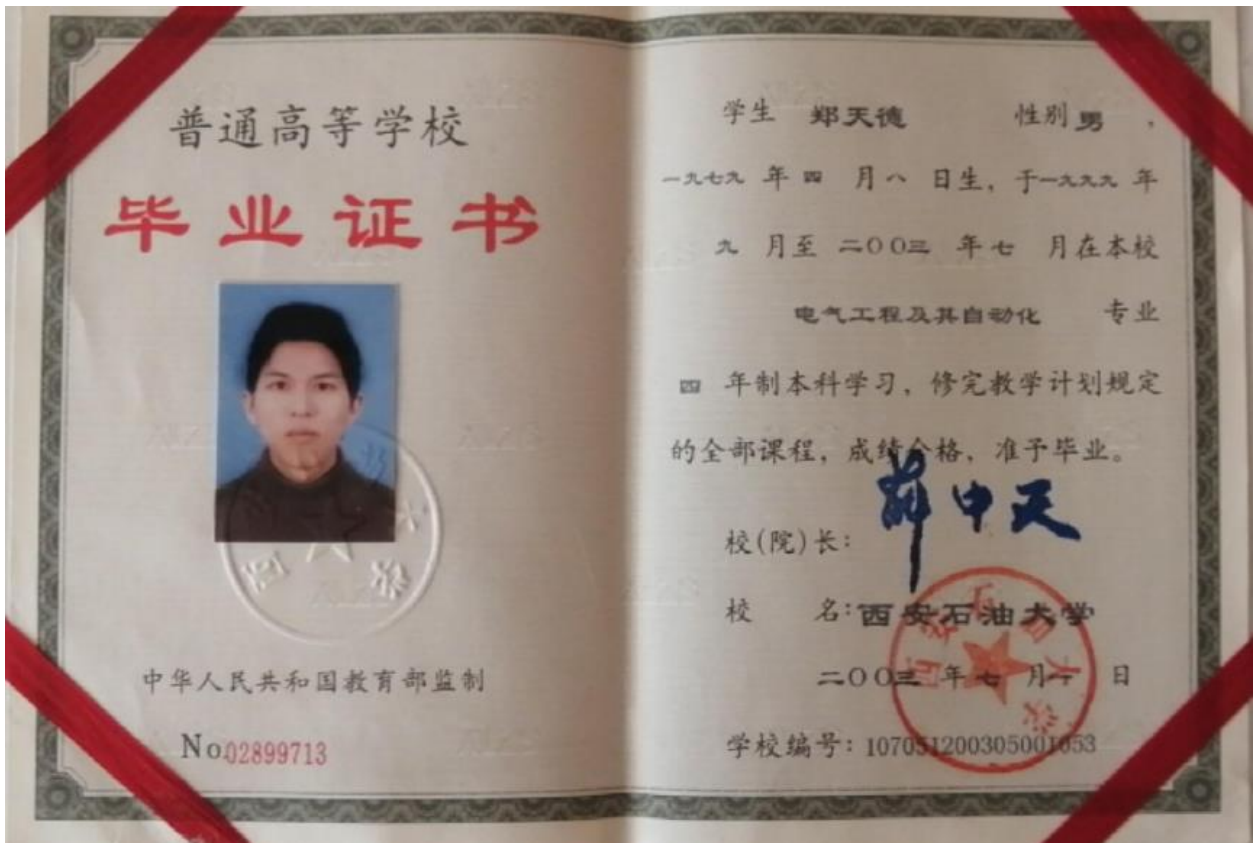 普通高等学校
毕业证书
中华人民共和国教育部监制
No.02899713
学生 郑天德 性别 男 ，
一九七九 年 四 月 八 日生，于一九九九 年
九 月至 二００三 年 七 月在本校
电气工程及其自动化 专业
四 年制本科学习，修完教学计划规定
的全部课程，成绩合格，准予毕业。
校(院)长：薛中天
校 名：西安石油大学
二００三 年 七 月 一 日
学校编号：107051200305001053